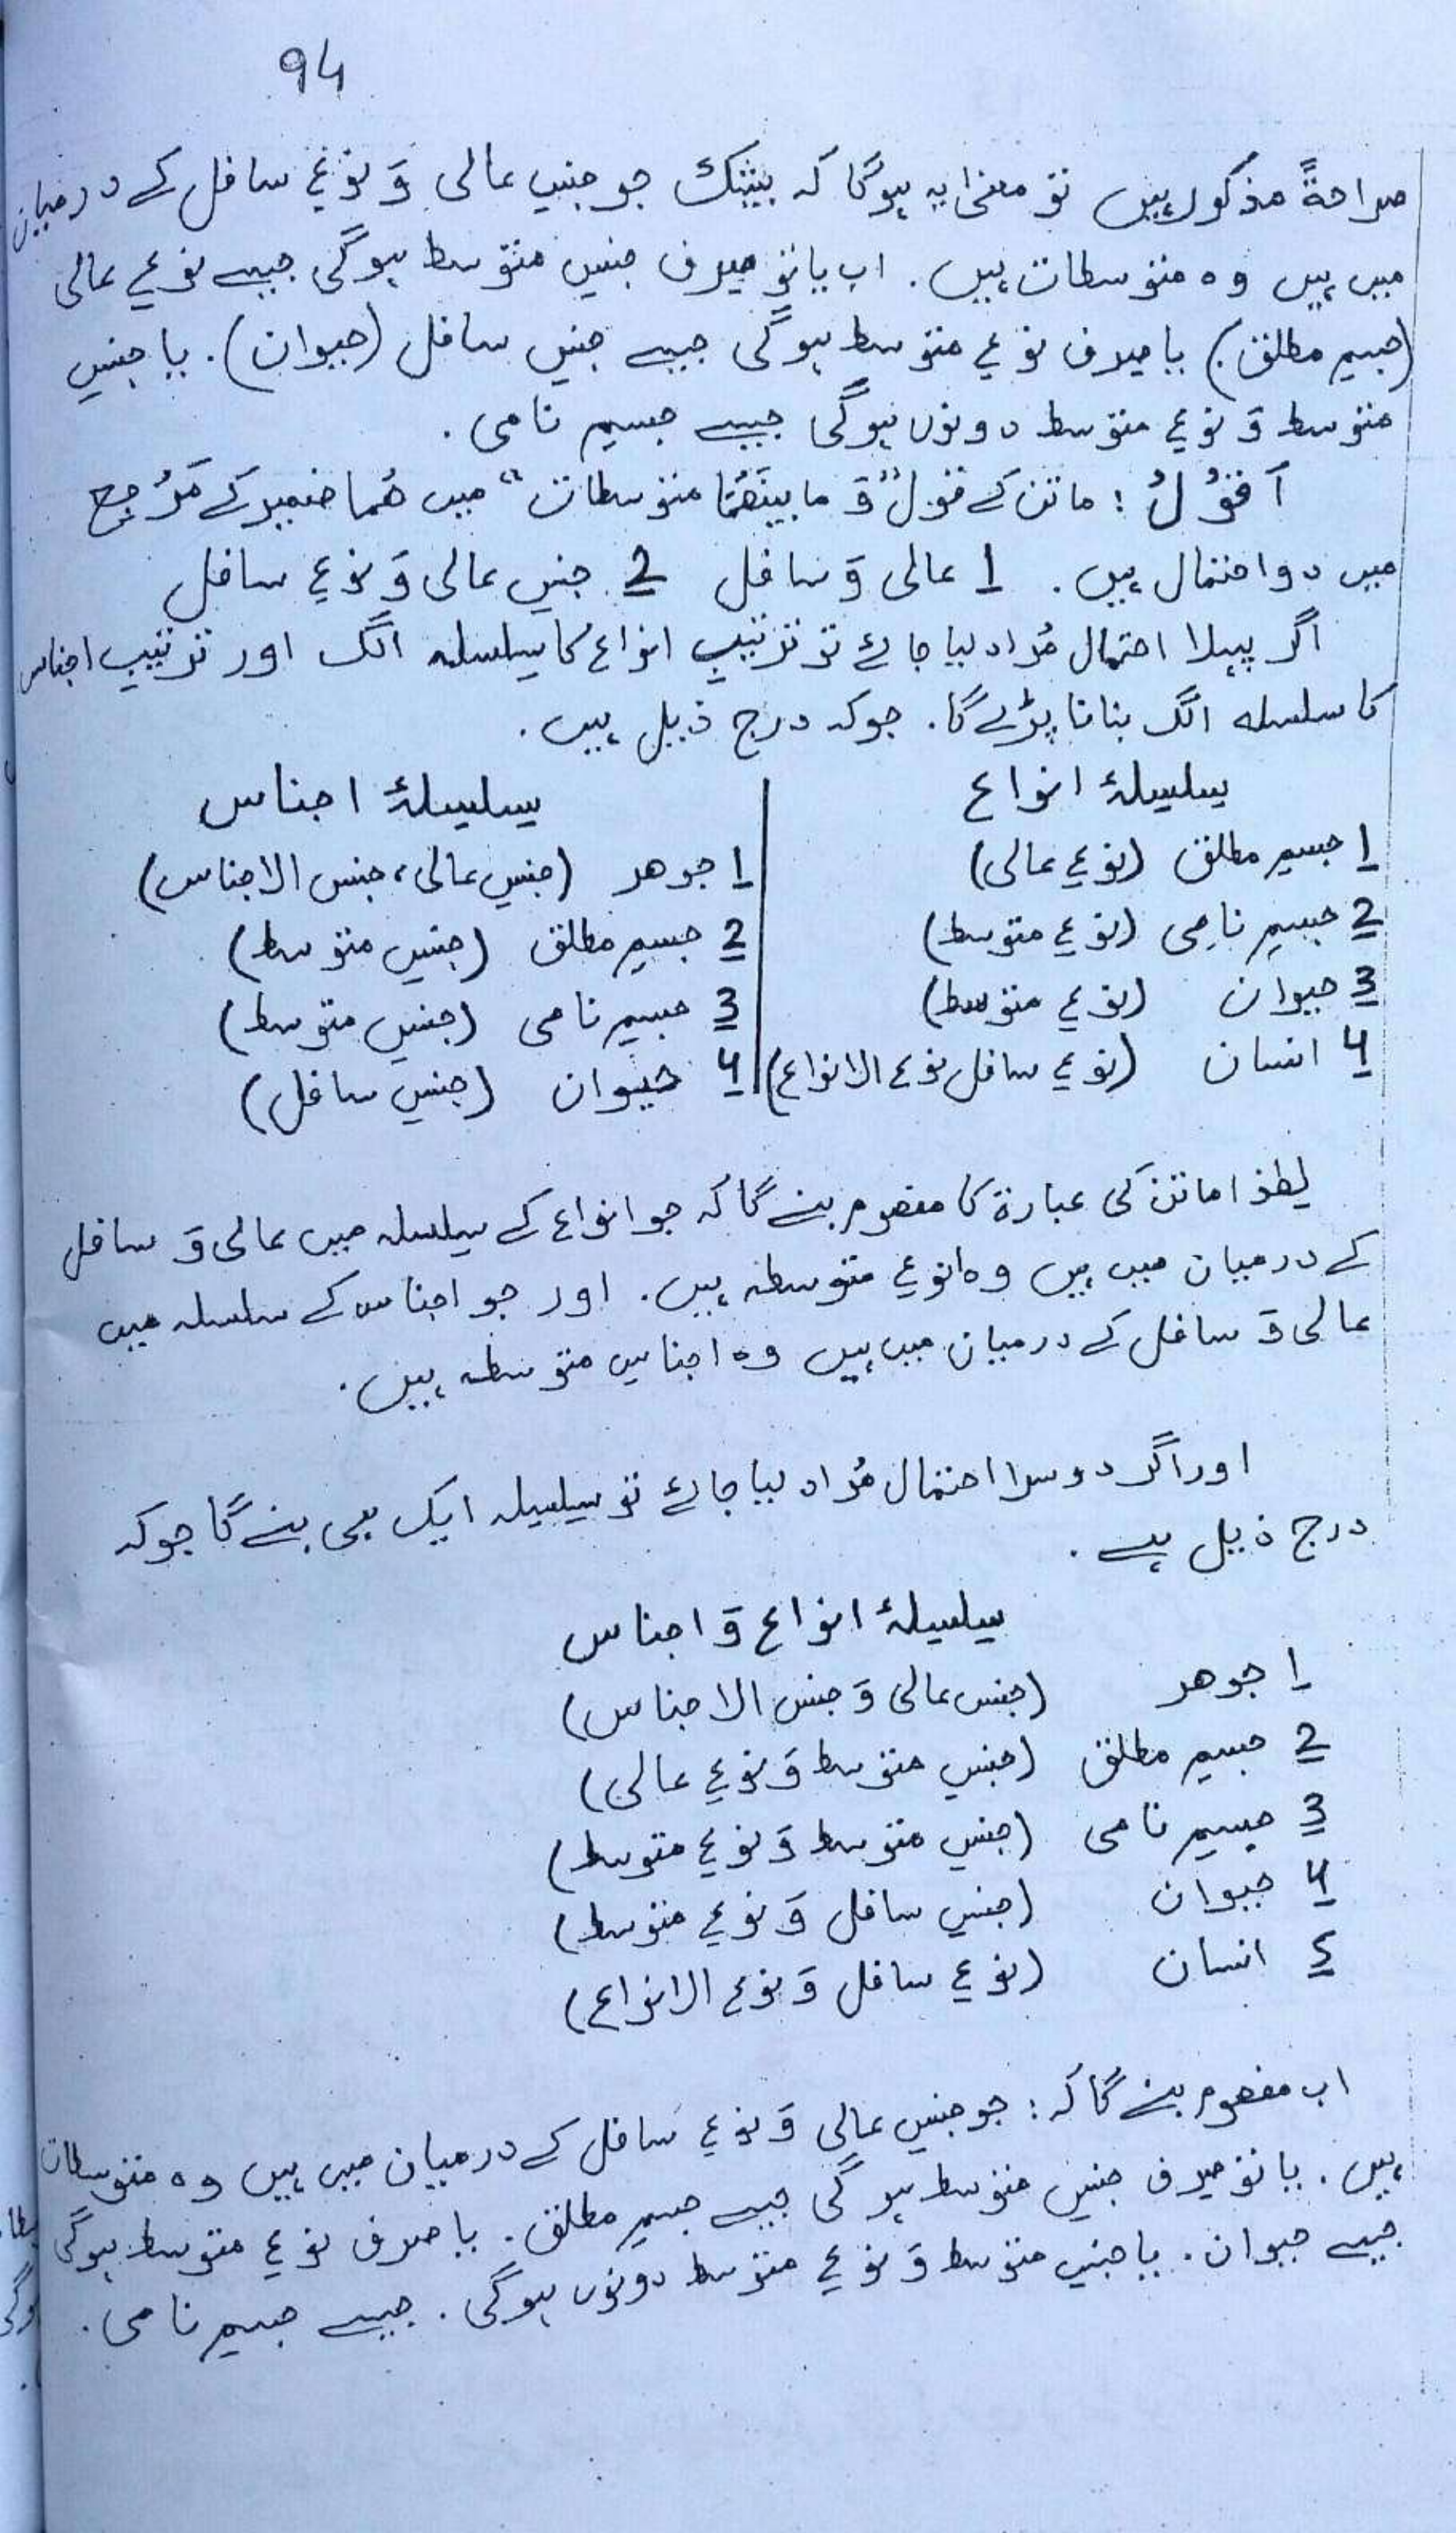 94
صراحةً مذکور ہیں تو معنیٰ یہ ہوگا کہ بیشک جو جنسِ عالی وَ نوعِ سافل کے درمیان
میں ہیں وہ متوسطات ہیں. اب یا تو صِرف جنسِ متوسط ہوگی جیسے نوعِ عالی
(جسمِ مطلق) یا صِرف نوعِ متوسط ہوگی جیسے جنسِ سافل (حیوان). یا جنسِ
متوسط وَ نوعِ متوسط دونوں ہوگی جیسے جسمِ نامی.
اَقُوْلُ : ماتن کے قول "وَ ما بینَھُمَا متوسطات" میں ھُما ضمیر کے مَرْجِع
میں دو احتمال ہیں. 1 عالی وَ سافل 2 جنسِ عالی وَ نوعِ سافل
اگر پہلا احتمال مُراد لیا جائے تو ترتیبِ انواع کا سِلسلہ الگ اور ترتیبِ اجناس
کا سلسلہ الگ بنانا پڑے گا. جوکہ درج ذیل ہیں.
سِلسِلۂ انواع | سِلسِلۂ اجناس
1 جسمِ مطلق (نوعِ عالی) | 1 جوھر (جنسِ عالی، جنس الاجناس)
2 جسمِ نامِی (نوعِ متوسط) | 2 جسمِ مطلق (جنسِ متوسط)
3 حیوان (نوعِ متوسط) | 3 جسمِ نامی (جنسِ متوسط)
4 انسان (نوعِ سافل نوع الانواع) | 4 حیوان (جنسِ سافل)
لھٰذا ماتن کی عبارۃ کا مفھوم بنے گا کہ جو انواع کے سِلسلہ میں عالی وَ سافل
کے درمیان میں ہیں وہ انوعِ متوسطہ ہیں. اور جو اجناس کے سلسلہ میں
عالی وَ سافل کے درمیان میں ہیں وہ اجناسِ متوسطہ ہیں.
اور اگر دوسرا احتمال مُراد لیا جائے تو سِلسِلہ ایک ہی بنے گا جوکہ
درج ذیل ہے.
سِلسِلۂ انواع وَ اجناس
1 جوھر (جنس عالی وَ جنس الاجناس)
2 جسمِ مطلق (جنسِ متوسط وَ نوعِ عالی)
3 جسمِ نامی (جنسِ متوسط وَ نوعِ متوسط)
4 حیوان (جنسِ سافل وَ نوعِ متوسط)
5 انسان (نوعِ سافل وَ نوع الانواع)
اب مفھوم بنے گا کہ : جو جنسِ عالی وَ نوعِ سافل کے درمیان میں ہیں وہ متوسطات
ہیں. یا تو صِرف جنسِ متوسط ہوگی جیسے جسمِ مطلق. یا صرف نوعِ متوسط ہوگی
جیسے حیوان. یا جنسِ متوسط وَ نوعِ متوسط دونوں ہوگی. جیسے جسمِ نامی.